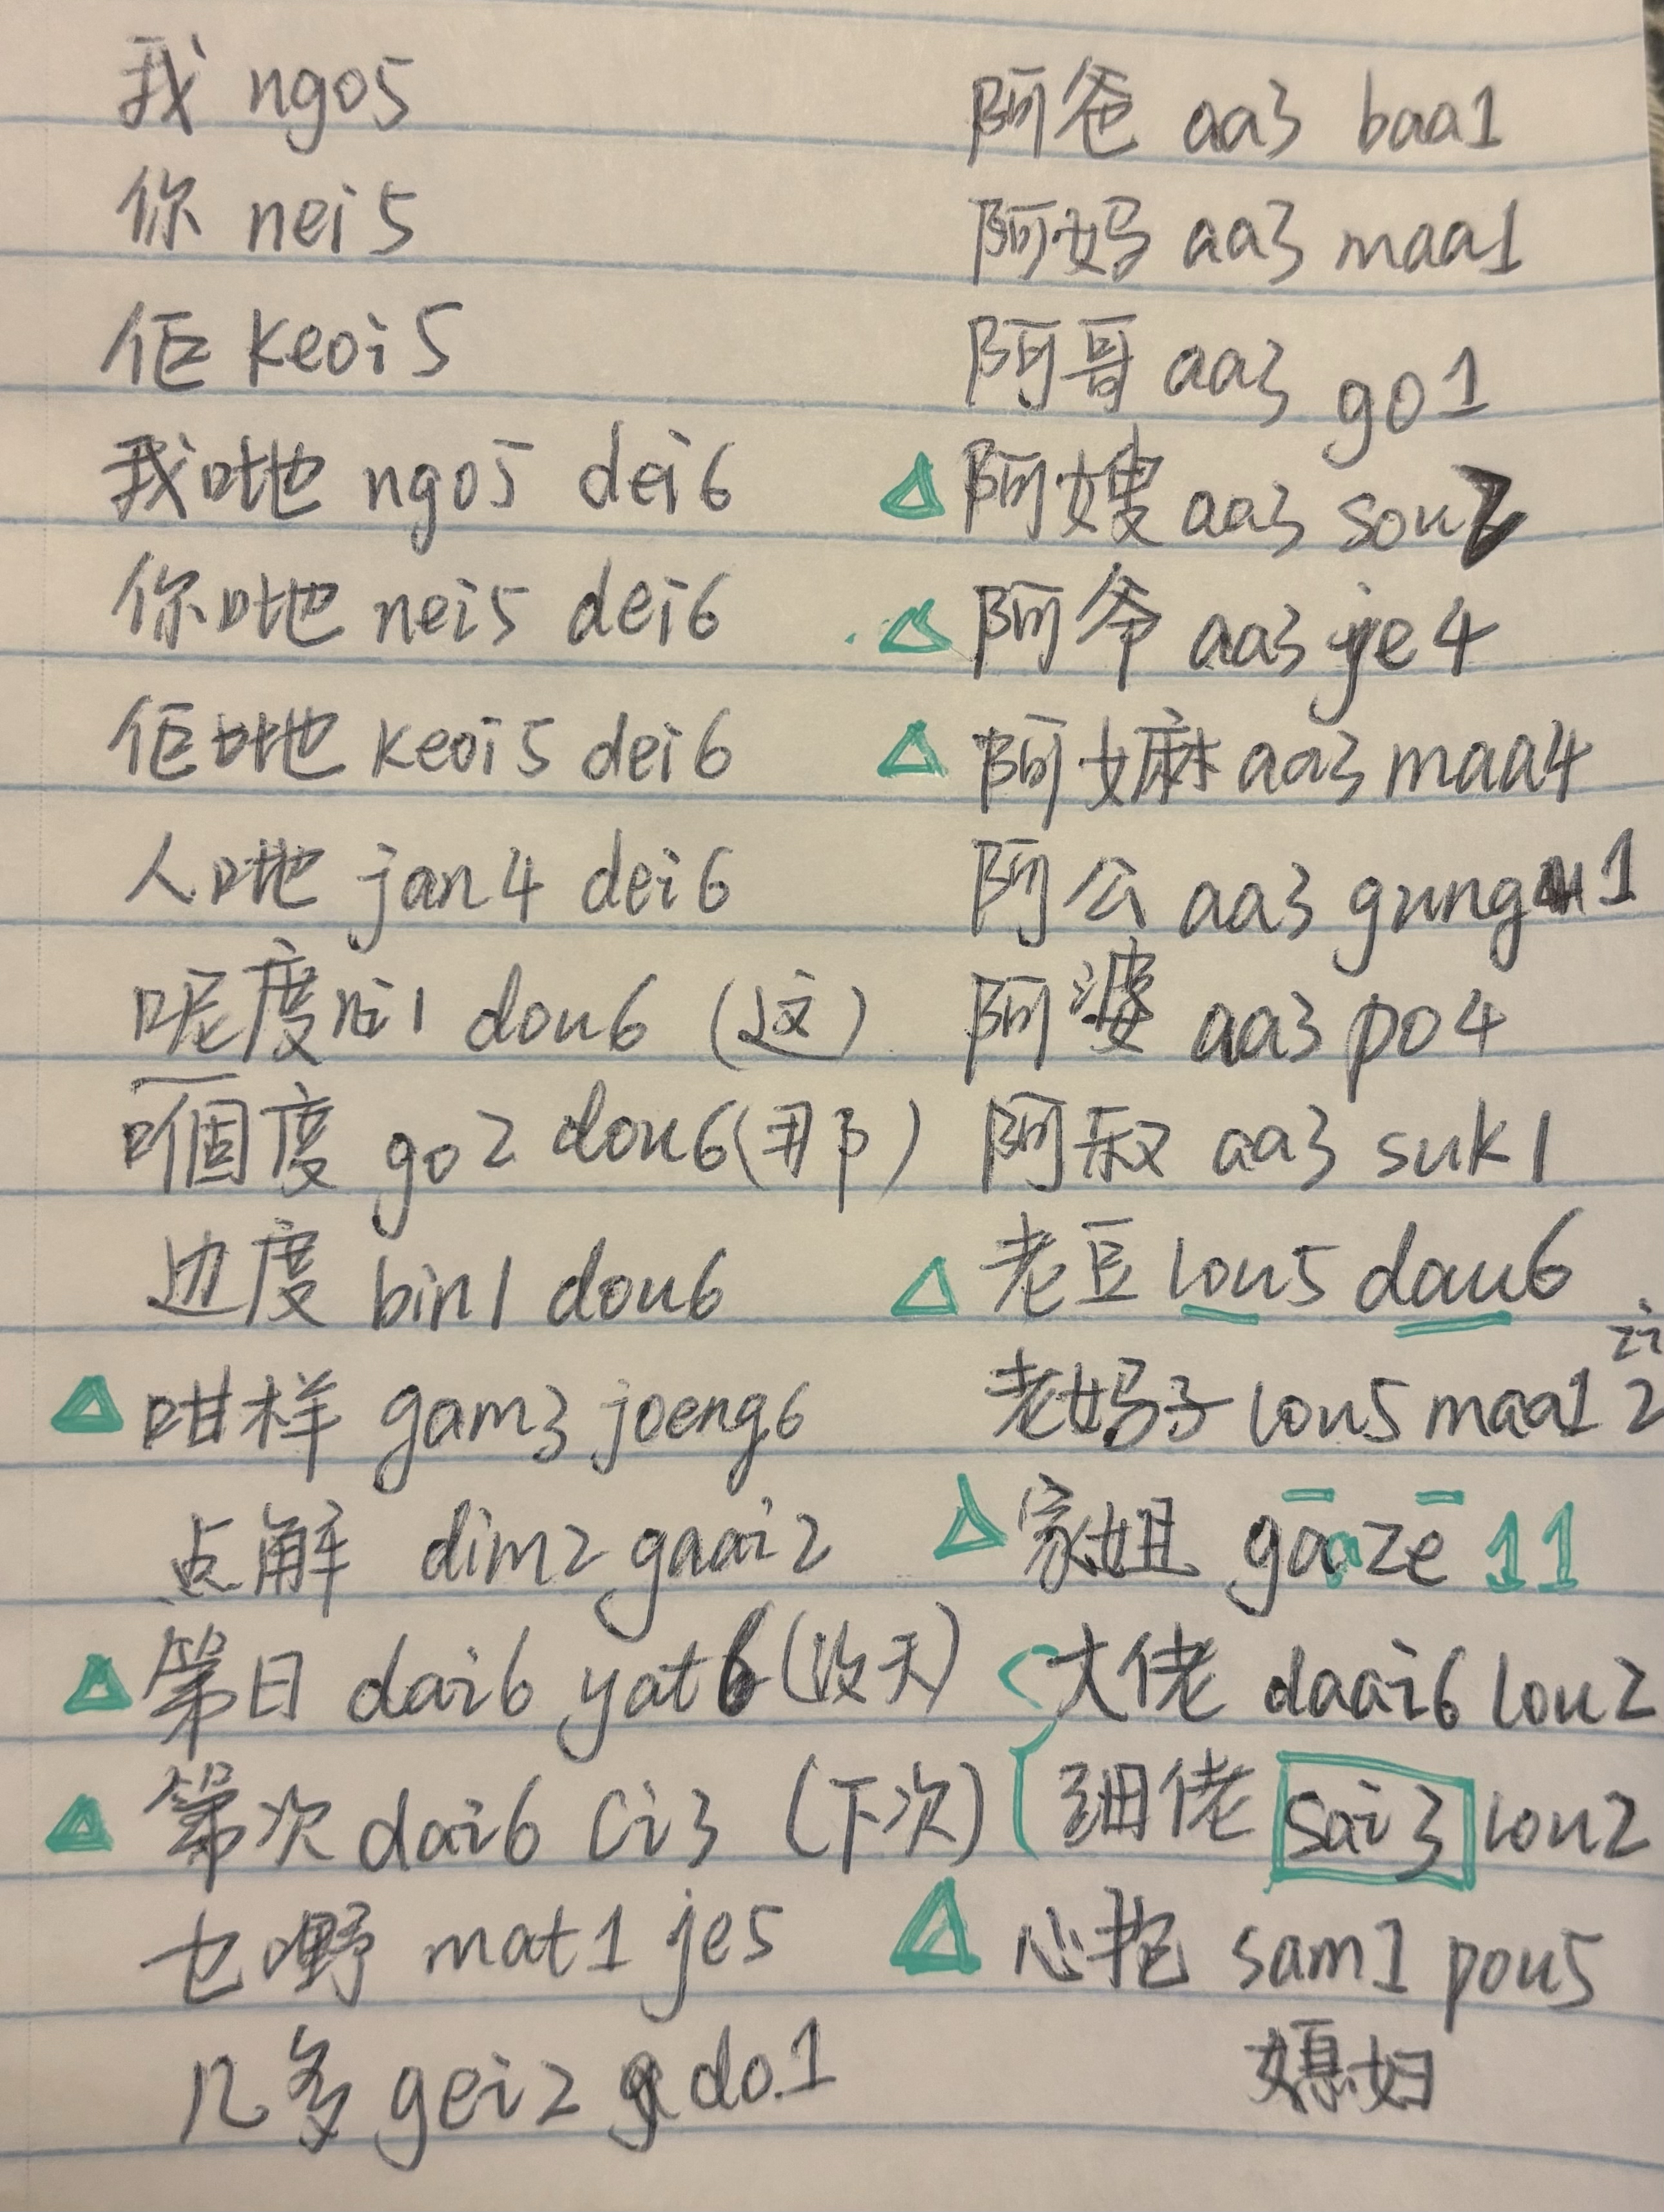 我 ngo5
你 nei5
佢 keoi5
我哋 ngo5 dei6
你哋 nei5 dei6
佢哋 keoi5 dei6
人哋 jan4 dei6
呢度 ni1 dou6 (这)
嗰度 go2 dou6 (那)
边度 bin1 dou6
咁样 gam3 joeng6
点解 dim2 gaai2
第日 dai6 yat6 (改天)
第次 dai6 ci3 (下次)
乜嘢 mat1 je5
几多 gei2 do1
阿爸 aa3 baa1
阿妈 aa3 maa1
阿哥 aa3 go1
阿嫂 aa3 sou2
阿爷 aa3 je4
阿嫲 aa3 maa4
阿公 aa3 gung1
阿婆 aa3 po4
阿叔 aa3 suk1
老豆 lou5 dau6
老妈子 lou5 maa1 zi2
家姐 gaa ze 11
大佬 daai6 lou2
细佬 sai3 lou2
心抱 sam1 pou5
媳妇